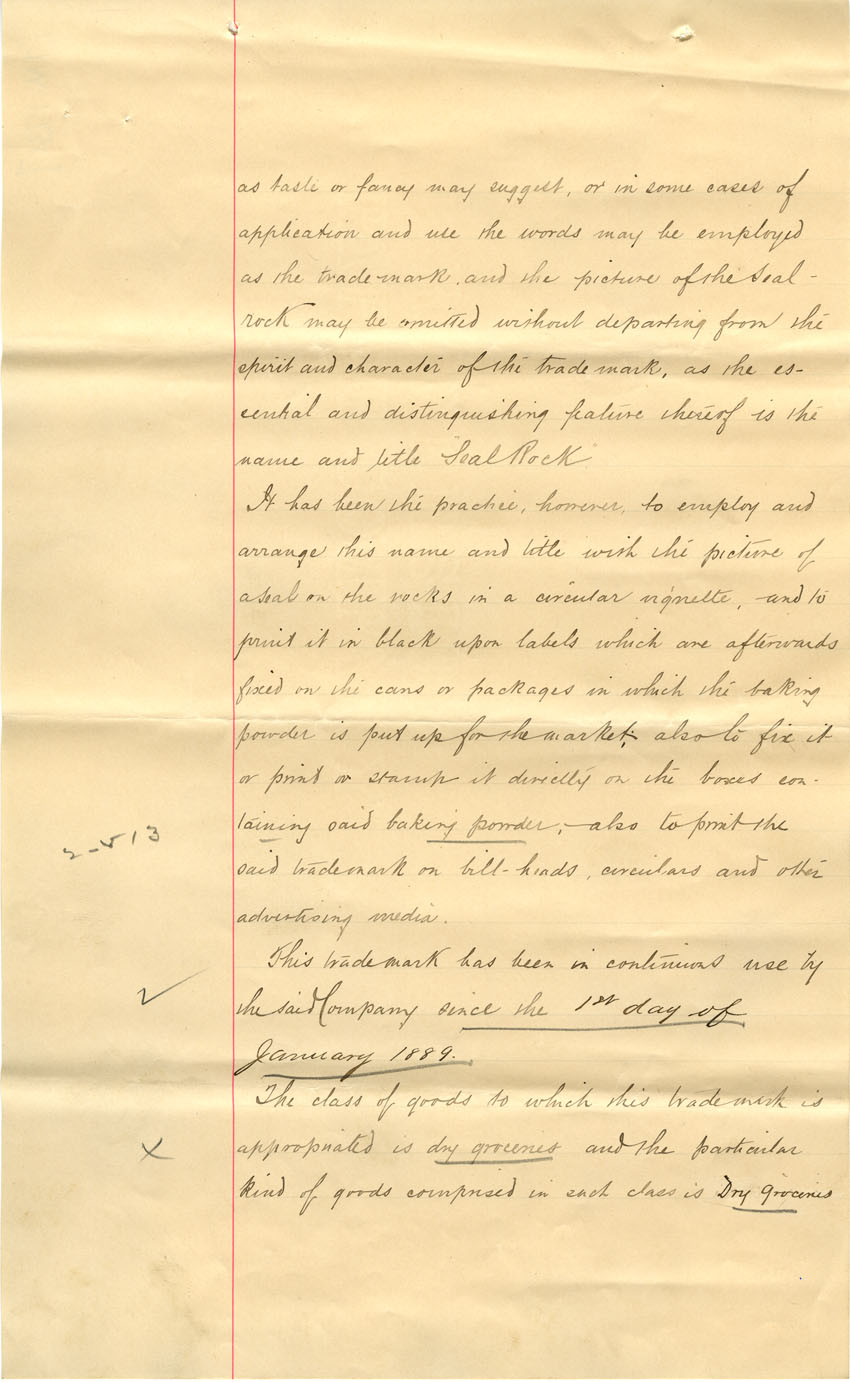 as taste or fancy may suggest, or in some cases of
application and use the words may be employed
as the trade-mark, and the picture of the Seal-
rock may be omitted without departing from the
spirit and character of the trade mark, as the es-
sential and distinguishing feature thereof is the
name and title "Seal Rock"
It has been the practice, however, to employ and
arrange this name and title with the picture of
a seal on the rocks in a circular vignette, and to
print it in black upon labels which are afterwards
fixed on the cans or packages in which the baking
powder is put up for the market; also to fix it
or print or stamp it directly on the boxes con-
taining said baking powder; also to print the
2-13
said trademark on bill-heads, circulars and other
advertising media.
This trade mark has been in continuous use by
the said Company since the 1st day of
January 1889.
The class of goods to which this trade mark is
appropriated is dry groceries and the particular
kind of goods comprised in such class is Dry Groceries